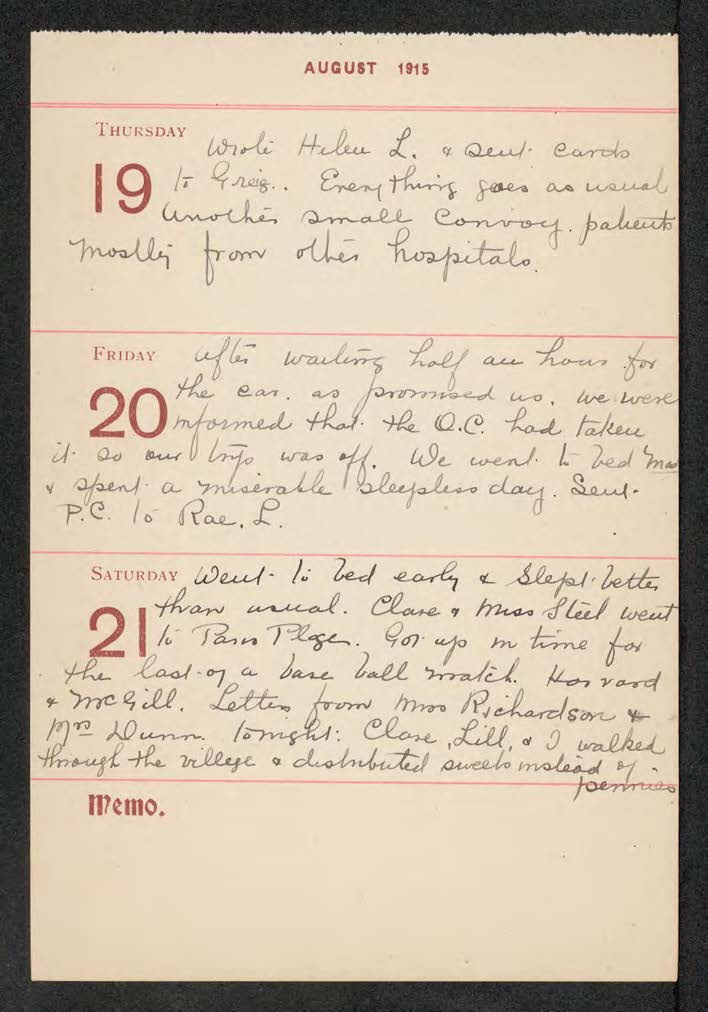 AUGUST 1915
THURSDAY
Wrote Helen L. & sent cards
19 to Greig.. Everything goes as usual
another small convoy. patients
mostly from other hospitals.
FRIDAY after waiting half an hour for
20 the car. as promised us, we were
informed that the O.C. had taken
it so our trip was off. We went to bed
& spent a miserable sleepless day. Sent
P.C. to Rae. L.
SATURDAY Went to bed early & slept better
21 than usual. Clare & Miss Steel went
to Paris Plage. Got up in time for
the last of a base ball match. Harvard
& McGill. Letters from Miss Richardson &
Mrs Dunn. tonight. Clare, Lill, & I walked
through the village & distributed sweets instead of
pennies
Memo.